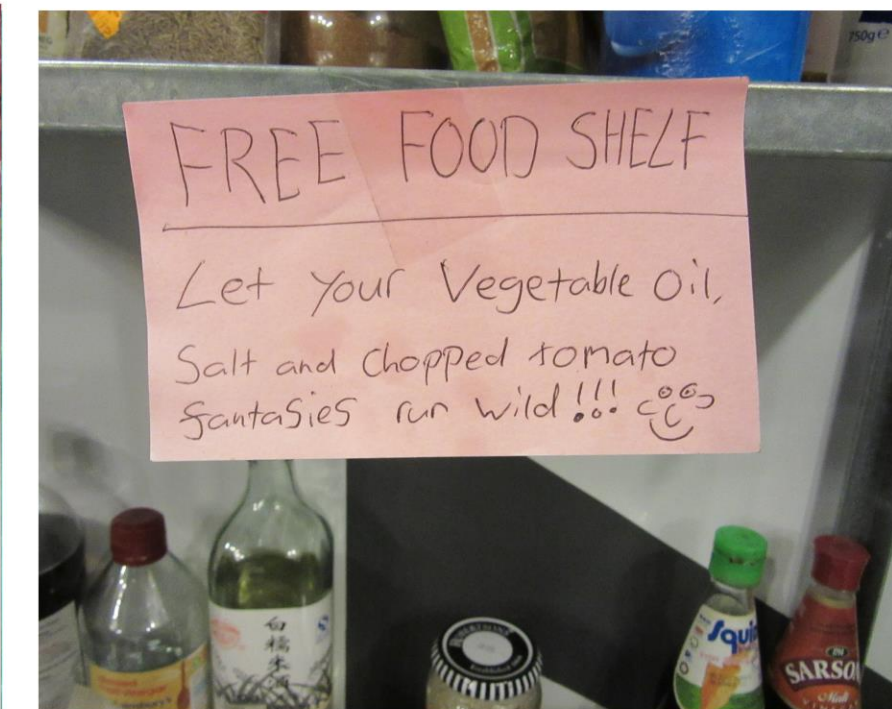 750g e
FREE FOOD SHELF
Let your Vegetable Oil,
Salt and Chopped tomato
fantasies run wild!!!
白糯米酒
Squi
SARSO
Malt